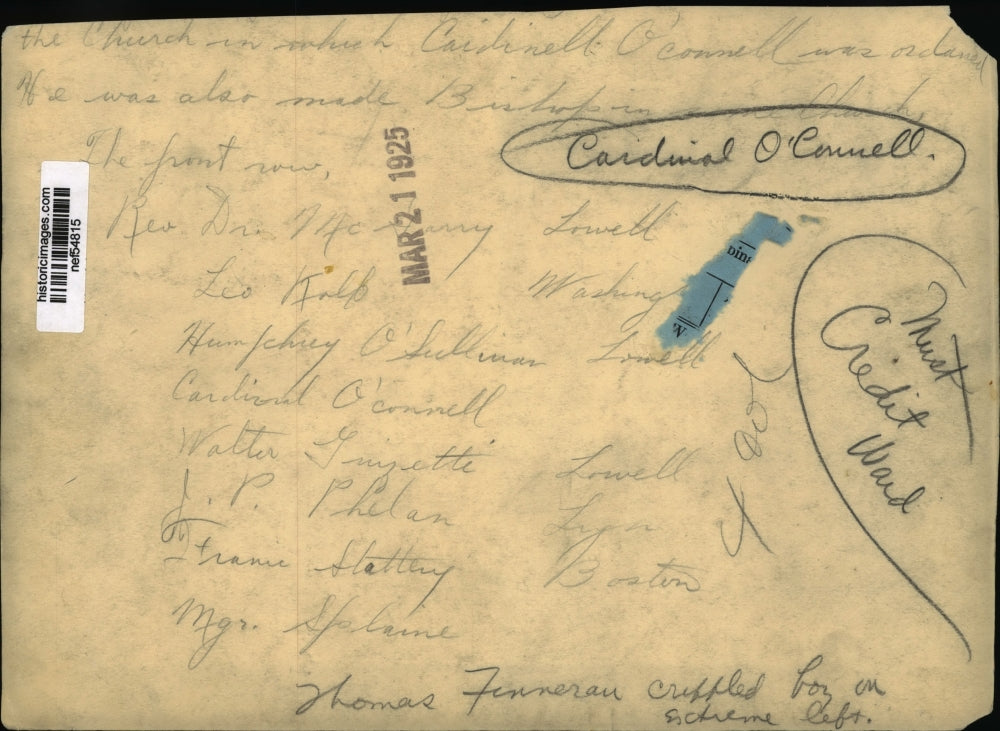 the Church in which Cardinell O'connell was ordained
He was also made Bishop in same Church.
Cardinal O'Connell.
The front row,
MAR 21 1925
historicimages.com
nef54815
Rev Dr. Lowell
Leo Washing
Humphrey O'Sullivan Lowell
Cardinal O'connell
Walter Lowell
J. P. Phelan Lynn
Slattery Boston
Mgr. Splaine
Must
Credit
Ward
Thomas Finneran crippled boy on
extreme left.